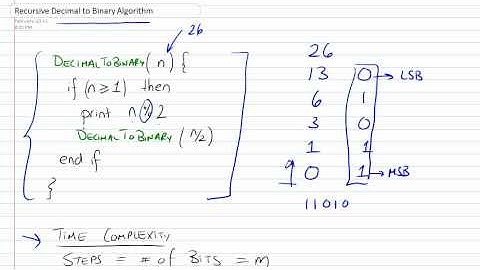 Recursive Decimal to Binary Algorithm
26
DECIMALTOBINARY(n) {
if (n ≥ 1) then
print n % 2
DECIMALTOBINARY (n/2)
end if
}
26
13 0 → LSB
6 1
3 0
1 1
0 1 → MSB
11010
→ TIME COMPLEXITY
STEPS = # OF BITS = m